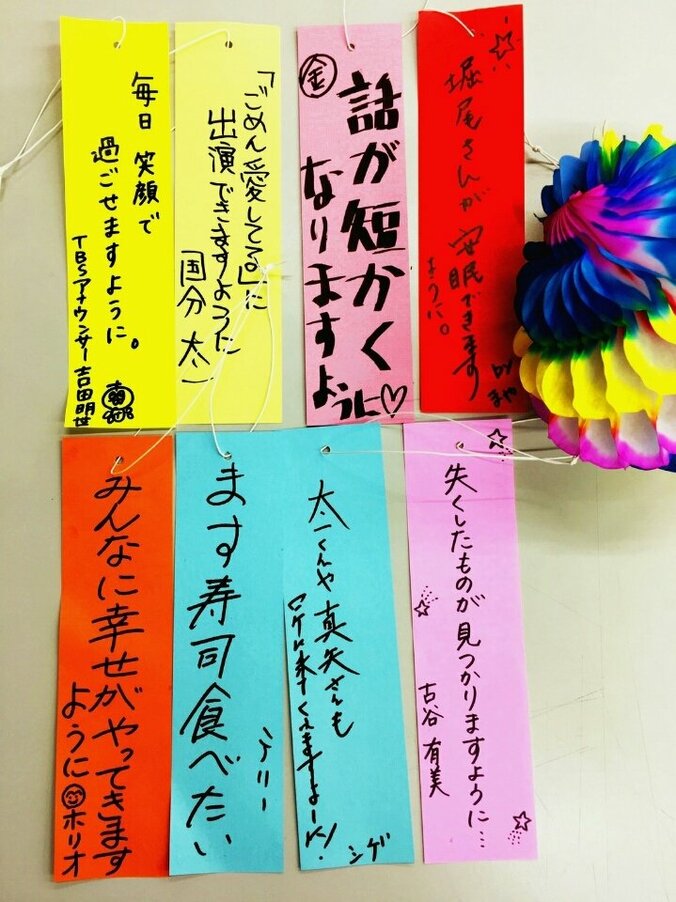 毎日 笑顔で
過ごせますように。
TBSアナウンサー 吉田明世
「ごめん愛してる」に
出演できますように
国分 太一
話が短かく
なりますように♡
㊎
堀尾さんが 安眠できます
ように。
by まや
みんなに幸せがやってきます
ように ホリオ
ます寿司食べたい
太一くんや真矢さんも
ロケに来てくれますよーに!
シゲ
失くしたものが見つかりますように…
古谷 有美